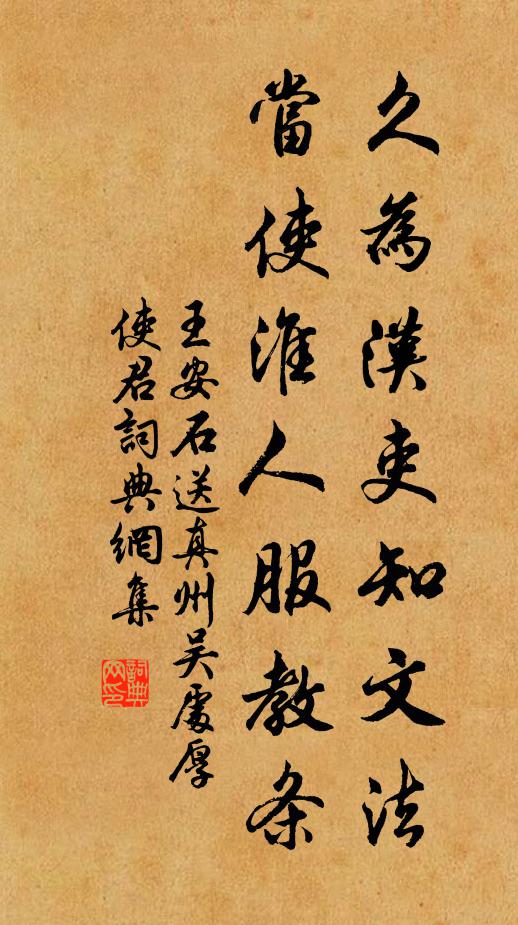 久為漢吏知文法
當使淮人服教条
王安石送真州吴處厚
使君詞典網集
詞典網印